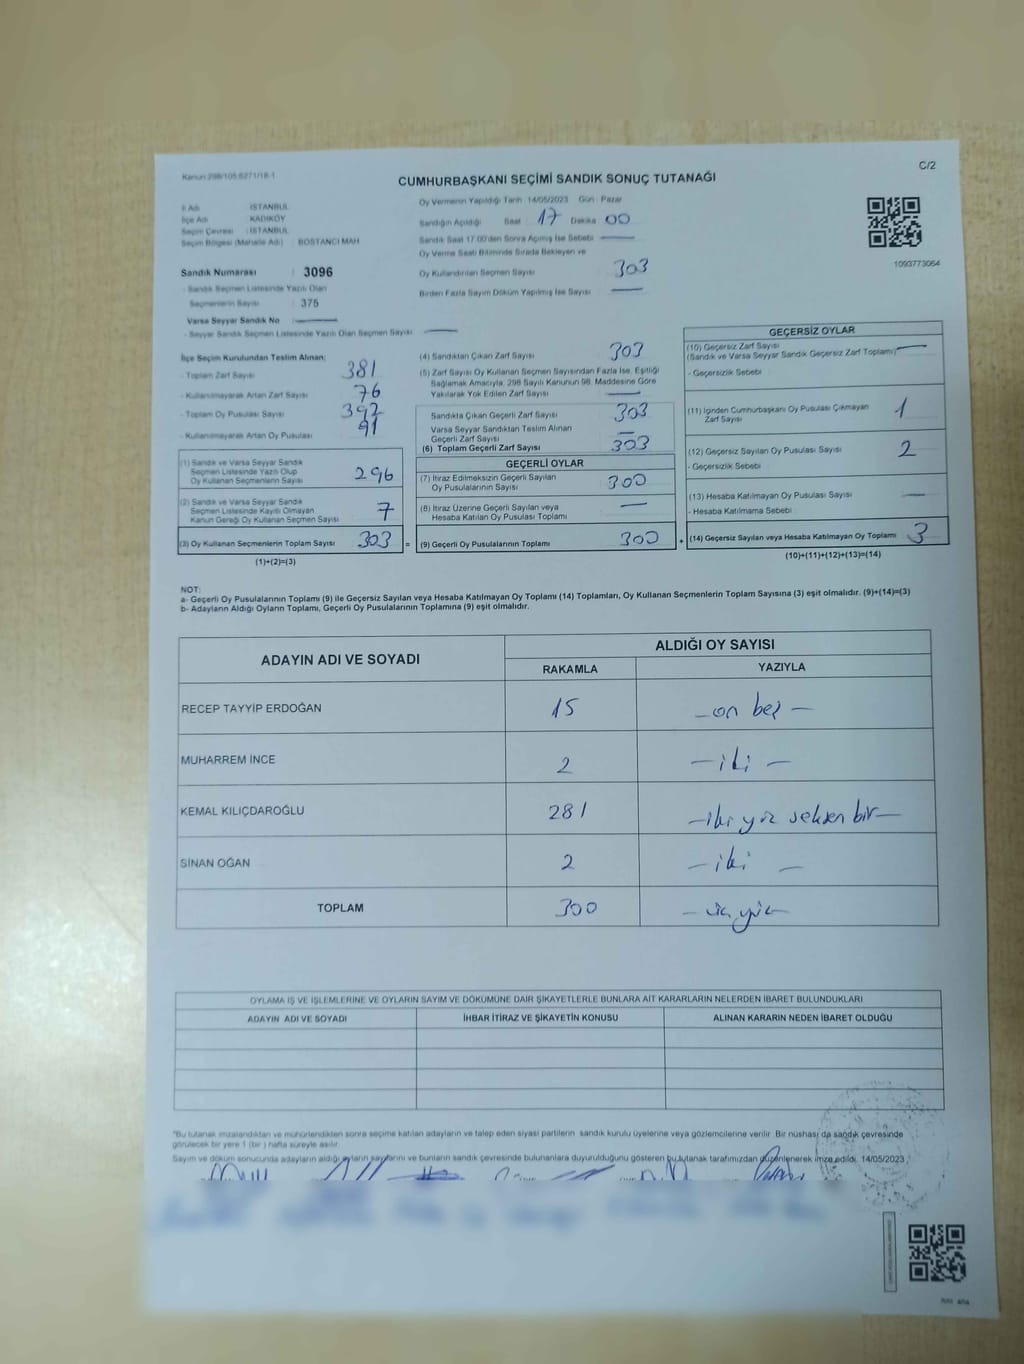 Kanun 298/105;6271/18-1
C/2
CUMHURBAŞKANI SEÇİMİ SANDIK SONUÇ TUTANAĞI
İl Adı : İSTANBUL
İlçe Adı : KADIKÖY
Seçim Çevresi : İSTANBUL
Seçim Bölgesi (Mahalle Adı) : BOSTANCI MAH.
Sandık Numarası : 3096
- Sandık Seçmen Listesinde Yazılı Olan
Seçmenlerin Sayısı : 375
Varsa Seyyar Sandık No
- Seyyar Sandık Seçmen Listesinde Yazılı Olan Seçmen Sayısı
Oy Vermenin Yapıldığı Tarih 14/05/2023 Gün : Pazar
Sandığın Açıldığı Saat 17 Dakika 00
Sandık Saat 17.00'den Sonra Açılmış İse Sebebi —
Oy Verme Saati Bitiminde Sırada Bekleyen ve
Oy Kullandırılan Seçmen Sayısı 303
Birden Fazla Sayım Döküm Yapılmış İse Sayısı —
1093773064
İlçe Seçim Kurulundan Teslim Alınan:
- Toplam Zarf Sayısı 381
- Kullanılmayarak Artan Zarf Sayısı 76
- Toplam Oy Pusulası Sayısı 392
- Kullanılmayarak Artan Oy Pusulası 91
(1) Sandık ve Varsa Seyyar Sandık
Seçmen Listesinde Yazılı Olup
Oy Kullanan Seçmenlerin Sayısı 296
(2) Sandık ve Varsa Seyyar Sandık
Seçmen Listesinde Kayıtlı Olmayan
Kanun Gereği Oy Kullanan Seçmen Sayısı 7
(3) Oy Kullanan Seçmenlerin Toplam Sayısı 303 =
(1)+(2)=(3)
(4) Sandıktan Çıkan Zarf Sayısı 303
(5) Zarf Sayısı Oy Kullanan Seçmen Sayısından Fazla İse, Eşitliği
Sağlamak Amacıyla, 298 Sayılı Kanunun 98. Maddesine Göre
Yakılarak Yok Edilen Zarf Sayısı —
Sandıkta Çıkan Geçerli Zarf Sayısı 303
Varsa Seyyar Sandıktan Teslim Alınan
Geçerli Zarf Sayısı —
(6) Toplam Geçerli Zarf Sayısı 303
GEÇERLİ OYLAR
(7) İtiraz Edilmeksizin Geçerli Sayılan
Oy Pusulalarının Sayısı 300
(8) İtiraz Üzerine Geçerli Sayılan veya
Hesaba Katılan Oy Pusulası Toplamı —
(9) Geçerli Oy Pusulalarının Toplamı 300 +
GEÇERSİZ OYLAR
(10) Geçersiz Zarf Sayısı
(Sandık ve Varsa Seyyar Sandık Geçersiz Zarf Toplamı) —
- Geçersizlik Sebebi
(11) İçinden Cumhurbaşkanı Oy Pusulası Çıkmayan
Zarf Sayısı 1
(12) Geçersiz Sayılan Oy Pusulası Sayısı 2
- Geçersizlik Sebebi
(13) Hesaba Katılmayan Oy Pusulası Sayısı —
- Hesaba Katılmama Sebebi
(14) Geçersiz Sayılan veya Hesaba Katılmayan Oy Toplamı 3
(10)+(11)+(12)+(13)=(14)
NOT:
a- Geçerli Oy Pusulalarının Toplamı (9) ile Geçersiz Sayılan veya Hesaba Katılmayan Oy Toplamı (14) Toplamları, Oy Kullanan Seçmenlerin Toplam Sayısına (3) eşit olmalıdır. (9)+(14)=(3)
b- Adayların Aldığı Oyların Toplamı, Geçerli Oy Pusulalarının Toplamına (9) eşit olmalıdır.
ADAYIN ADI VE SOYADI
ALDIĞI OY SAYISI
RAKAMLA YAZIYLA
RECEP TAYYİP ERDOĞAN 15 — on beş —
MUHARREM İNCE 2 — iki —
KEMAL KILIÇDAROĞLU 281 — iki yüz seksen bir —
SİNAN OĞAN 2 — iki —
TOPLAM 300 — üç yüz —
OYLAMA İŞ VE İŞLEMLERİNE VE OYLARIN SAYIM VE DÖKÜMÜNE DAİR ŞİKAYETLERLE BUNLARA AİT KARARLARIN NELERDEN İBARET BULUNDUKLARI
ADAYIN ADI VE SOYADI İHBAR İTİRAZ VE ŞİKAYETİN KONUSU ALINAN KARARIN NEDEN İBARET OLDUĞU
"Bu tutanak imzalandıktan ve mühürlendikten sonra seçime katılan adayların ve talep eden siyasi partilerin sandık kurulu üyelerine veya gözlemcilerine verilir. Bir nüshası da sandık çevresinde
görülecek bir yere 1 (bir ) hafta süreyle asılır.
Sayım ve döküm sonucunda adayların aldığı oyların sayılarını ve bunların sandık çevresinde bulunanlara duyurulduğunu gösteren bu tutanak tarafımızdan düzenlenerek imza edildi. 14/05/2023